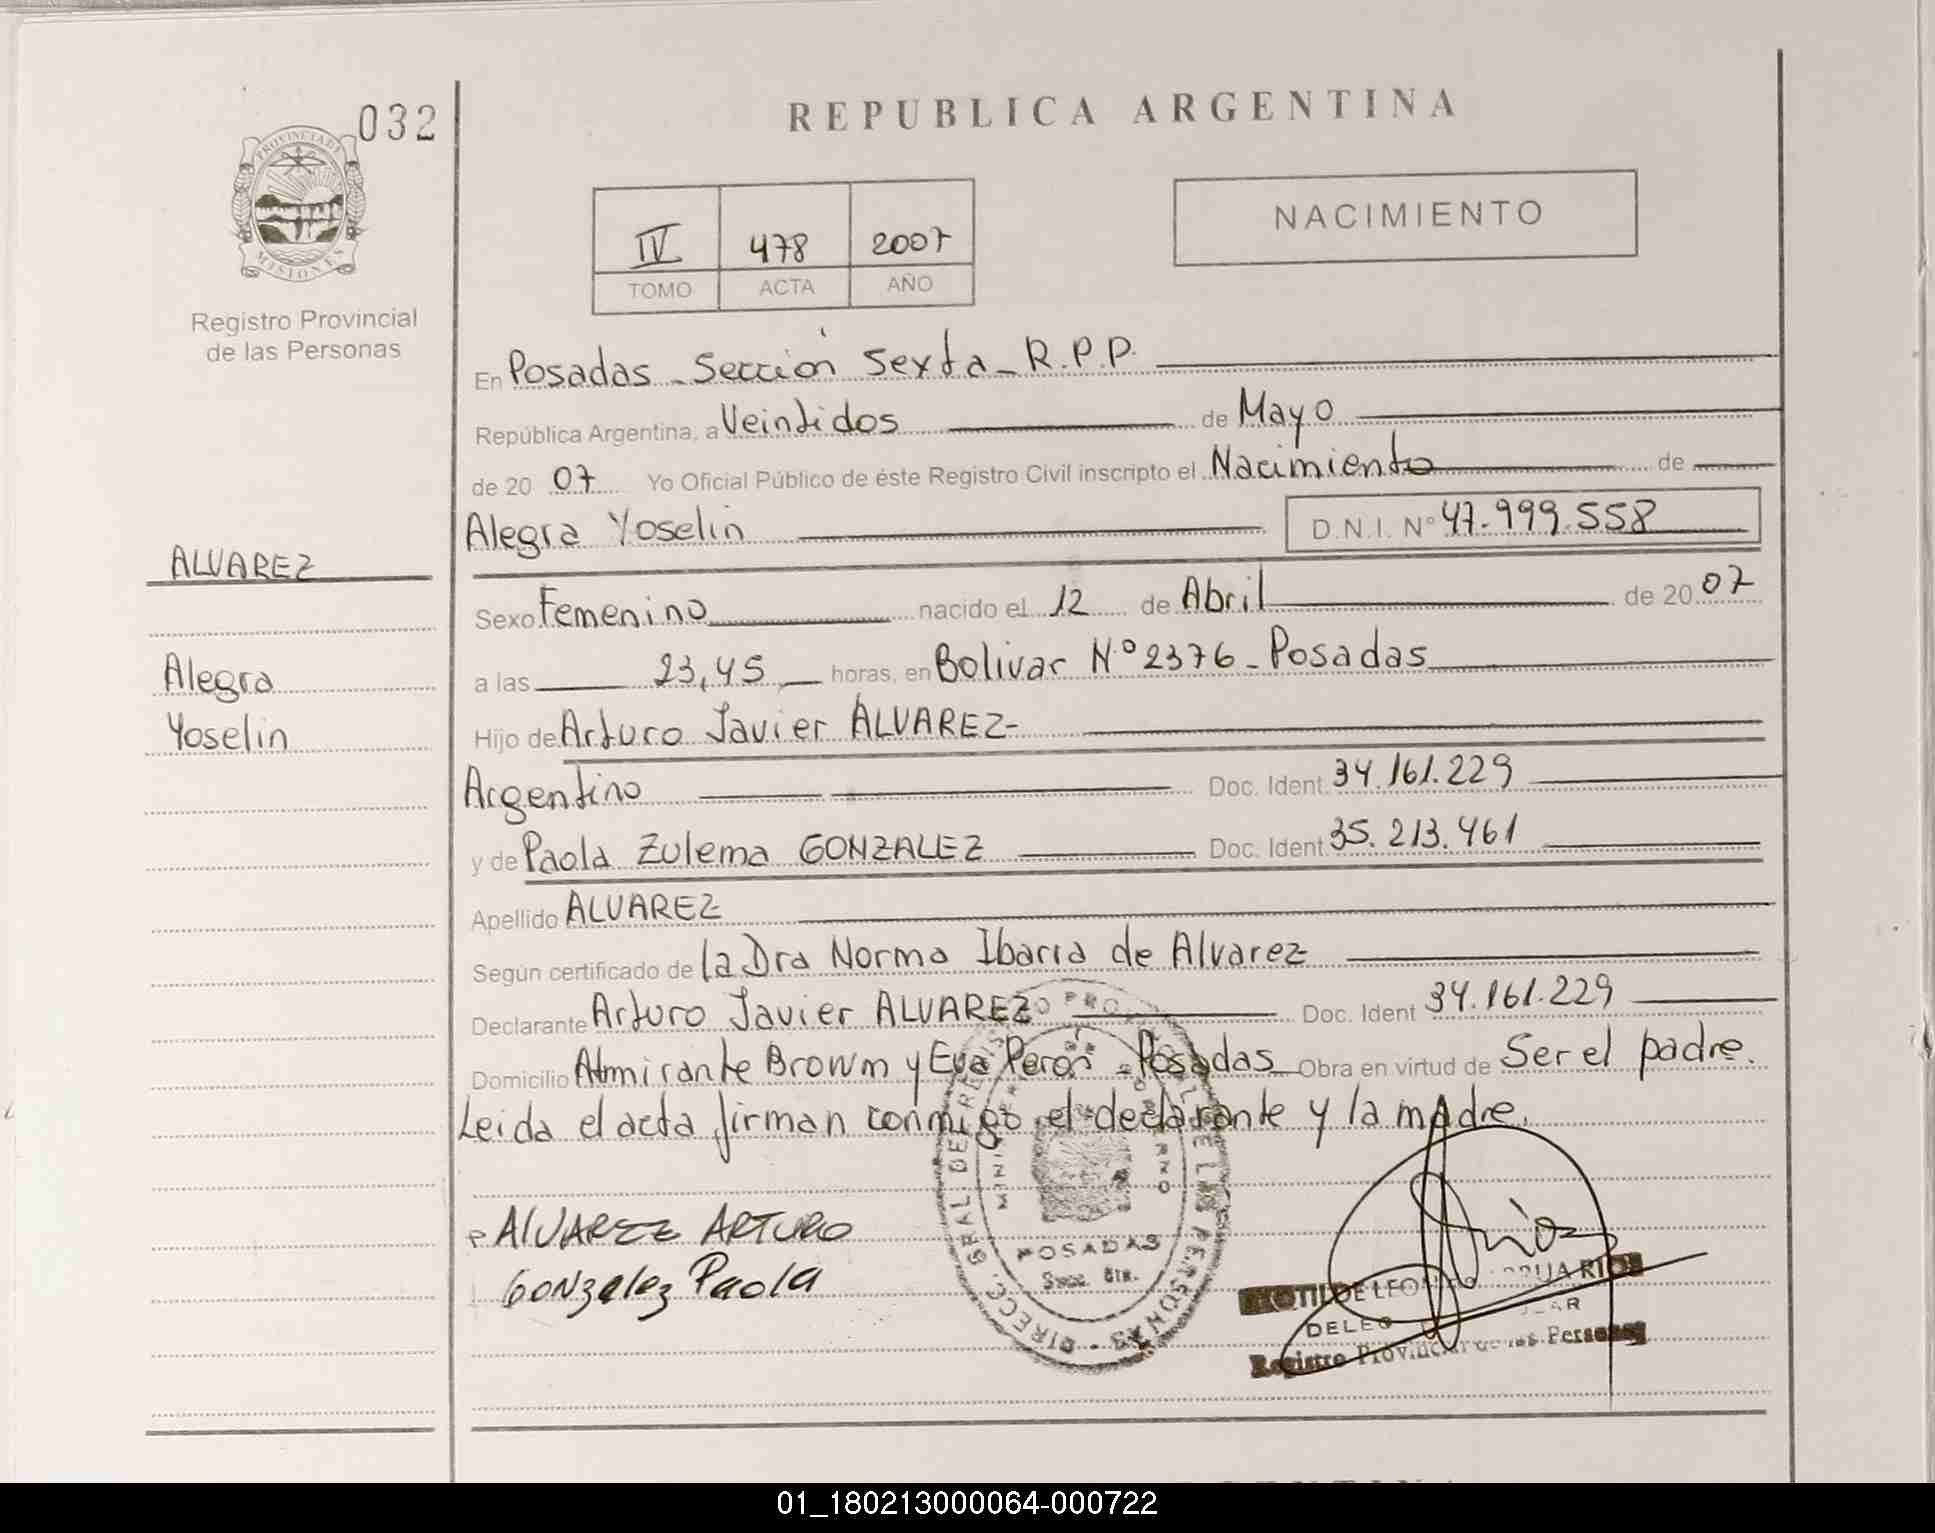 032
PROVINCIA DE
MISIONES
Registro Provincial
de las Personas
ALVAREZ
Alegra
Yoselin
REPUBLICA ARGENTINA
IV 478 2007
TOMO ACTA AÑO
NACIMIENTO
En Posadas - Sección Sexta - R.P.P.
República Argentina, a Veintidos de Mayo
de 20 07 Yo Oficial Público de éste Registro Civil inscripto el Nacimiento de
Alegra Yoselin D.N.I. Nº 47.999.558
Sexo Femenino nacido el 12 de Abril de 20 07
a las 23,45 horas, en Bolivar Nº 2376 - Posadas
Hijo de Arturo Javier ALVAREZ-
Argentino Doc. Ident. 34.161.229
y de Paola Zulema GONZALEZ Doc. Ident. 35.213.461
Apellido ALVAREZ
Según certificado de la Dra Norma Ibarra de Alvarez
Declarante Arturo Javier ALVAREZ Doc. Ident 34.161.229
Domicilio Almirante Browm y Eva Peron - Posadas Obra en virtud de Ser el padre.
Leida el acta firman conmigo el declarante y la madre.
ALVAREZ ARTURO
GONzalez Paola
POSADAS
Secc. 6ta.
DELEG
Registro Provincial de las Personas
01_180213000064-000722